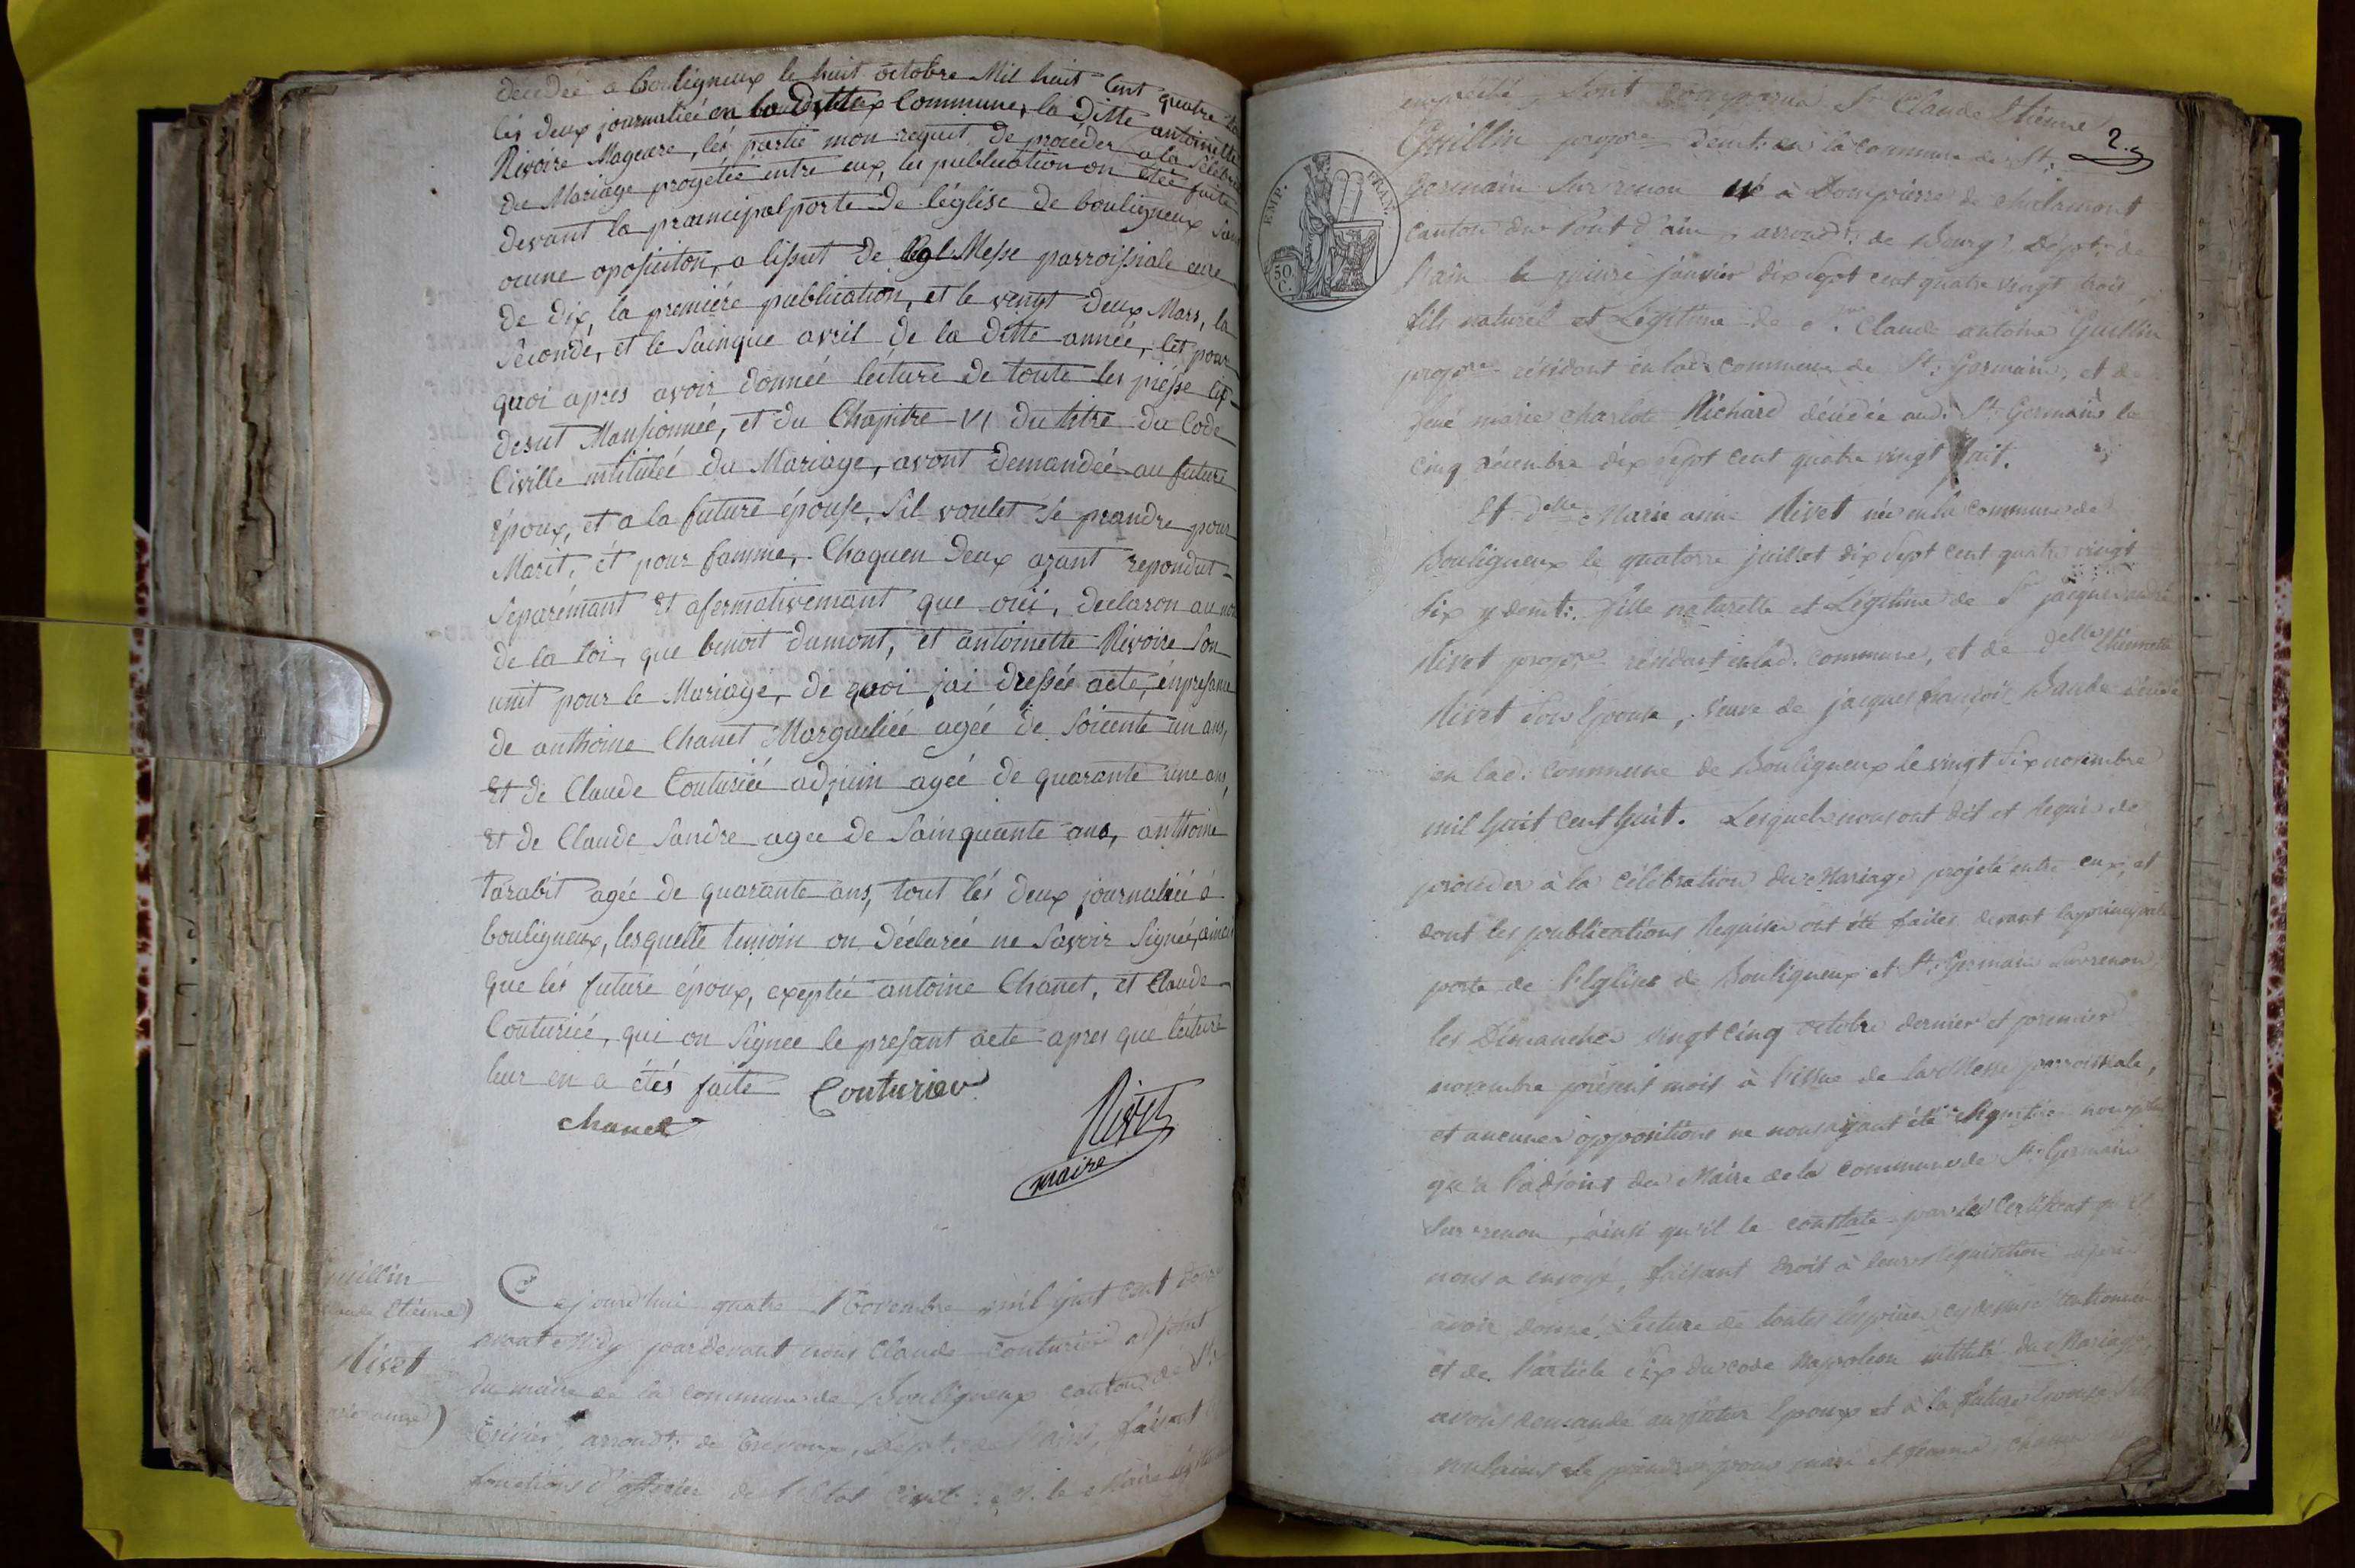 décédée a bouligneux le huit octobre Mil huit Cent quatre
lés deux journaliée en Commune, la Ditte antoinette
Rivoire Mageure, lés partie mon requit de procéder a la Sélébra
du Mariage progétée entre eux, les publication on étée faite
devant la praincipal porte de l'église de bouligneux Sans
ocune oposiciton, a lissut de Messe parroissiale eure
de dix, la première publication, et le vengt deux Mars, la
Seconde, et le Sainque avril de la ditte année, Cet pour
quoi apres avoir donnée lécture de toute les piésse cy-
desut Mansionnée, et du Chapitre VI du titre du Code
Civille intitulée du Mariage, avont demandée au future
époux, et a la future épouse, Sil voulet se prandre pour
Marit, ét pour famme, Chaquen deux ayant repondut
Séparémant et afermativemant que oüi, declaron au nom
de la loi, que benoit dumont, et antoinette Rivoire Son
unit pour le Mariage, de quoi jai dressée acte, énpresance
de anthoine Chanet Marguliée agée de Soicente un ans,
et de Claude Couturiéé adjuin agée de quarante une ans,
et de Claude Sandre agée de Sainquante ans, anthoine
tarabit agée de quarante ans, tout lés deux journaliée á
bouligneux, lesquelle temoin on déclarée ne Savoir Signée, ainci
que lés future époux, exeptée antoine Chanet, et Claude
Couturiéé, qui on Signee le presant acte apres que lécture
leur en a étés faite Couturier
chanet
Rivet
maire
Guillin
Claude Etienne)
Rivet
Marie anne)
Cejourd'hui quatre Novembre mil huit cent douze
avant Midy pardevant nous Claude Couturier adjoint
du maire de la commune de Bouligneux canton de St.
Trivier, arrondt. de Trevoux, Dépt. de l'ain, faisant
fonctions d'officier de l'Etat Civil, M. le Maire
empêché, Sont comparus Sr. Claude Etienne
Guillin propre. demt. en la commune de St.
2.
EMP. FRAN.
50. C.
Germain Sur renon né à Dompierre de chalamont
canton du Pont d'ain, arrondt. de Bourg, Dépt. de
l'ain le quinze janvier dix Sept cent quatre vingt trois,
fils naturel et Légitime de Sr. Claude antoine Guillin
propre. résidant en lad. commune de St. Germain, et de
feue marie charlote Richard décédée aud. St. Germain le
cinq décembre dix sept cent quatre vingt huit.
Et delle. Marie anne Rivet née en la commune de
Bouligneux le quatorze juillet dix Sept cent quatre vingt
Six y demt. fille naturelle et Légitime de Sr. jacques andré
Rivet propre. résidant en lad. commune, et de delle. Etiennette
Nivet Son Epouse, veuve de jacques françois décédé
en lad. commune de Bouligneux le vingt Six novembre
mil huit cent huit. Lesquels nous ont dit et Requis de
proceder à la célébration du Mariage projeté entre eux, et
dont les publications Requises ont été faites devant la principale
porte de l'église de Bouligneux et St. Germain Sur renon,
les Dimanches vingt cinq octobre dernier et premier
novembre présent mois à l'issue de la Messe parroissiale,
et aucunes oppositions ne nous ayant été Signifiées non plus
qu'a l'adjoint du Maire de la commune de St. Germain
Sur renon, ainsi qu'il le constate par le Certificat qu'il
nous a envoyé, faisant droit à leur réquisition après
avoir donné Lecture de toutes les pièces cy dessus mentionnées
et de l'article Six du code Napoléon intitulé du Mariage,
avons demandé au futur Epoux et à la future Epouse S'ils
voulaient Se prendre pour mari et femme chacun